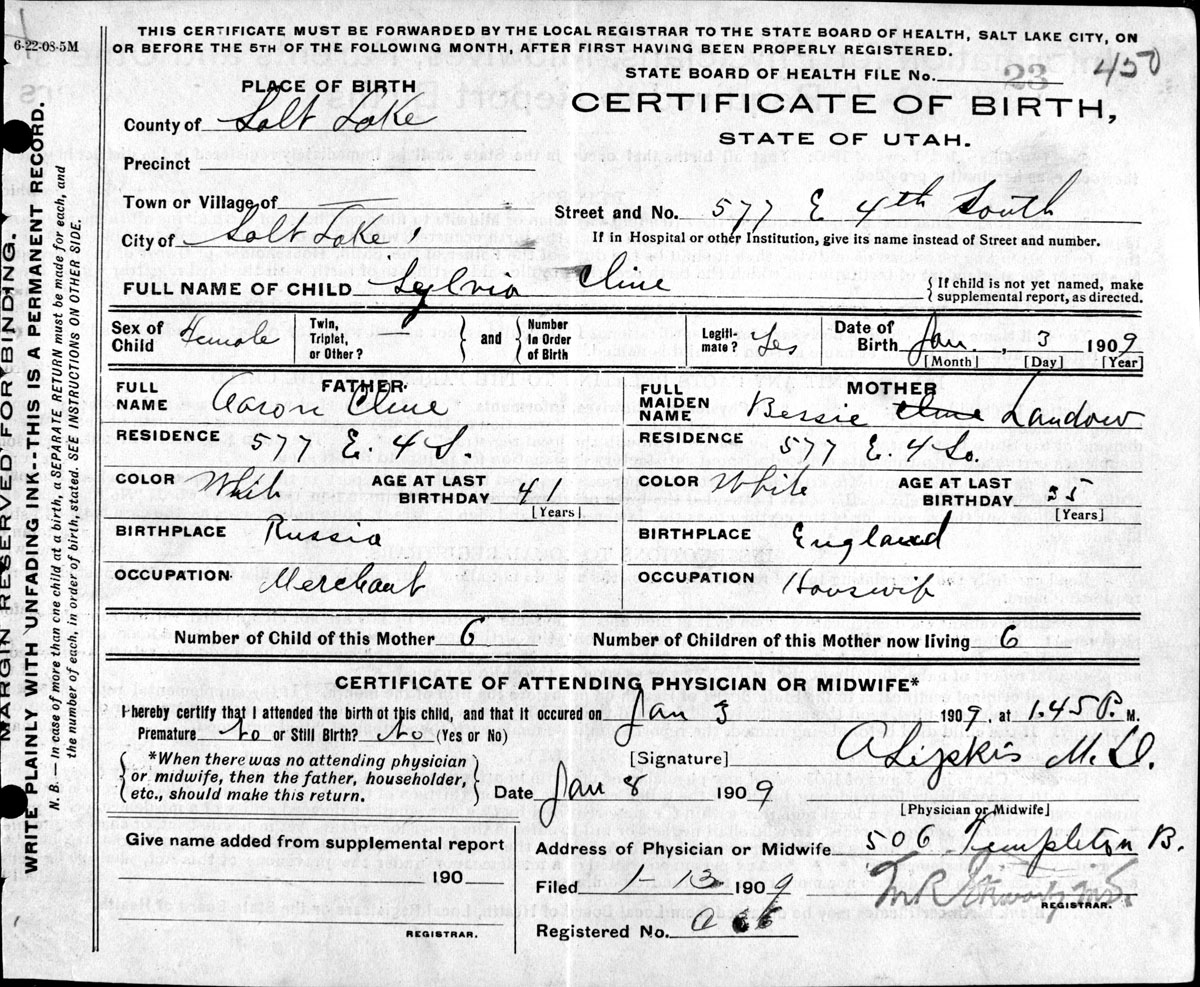 6-22-08-5M
THIS CERTIFICATE MUST BE FORWARDED BY THE LOCAL REGISTRAR TO THE STATE BOARD OF HEALTH, SALT LAKE CITY, ON
OR BEFORE THE 5TH OF THE FOLLOWING MONTH, AFTER FIRST HAVING BEEN PROPERLY REGISTERED.
STATE BOARD OF HEALTH FILE No. 23 450
CERTIFICATE OF BIRTH,
STATE OF UTAH.
PLACE OF BIRTH
County of Salt Lake
Precinct
Town or Village of
City of Salt Lake
Street and No. 577 E 4th South
If in Hospital or other Institution, give its name instead of Street and number.
FULL NAME OF CHILD Sylvia Cline
If child is not yet named, make
supplemental report, as directed.
Sex of Child Female
Twin, Triplet, or Other?
and
Number In Order of Birth
Legiti-mate? Yes
Date of Birth Jan 3 1909
[Month] [Day] [Year]
FATHER
FULL NAME Aaron Cline
RESIDENCE 577 E. 4 S.
COLOR White AGE AT LAST BIRTHDAY 41
[Years]
BIRTHPLACE Russia
OCCUPATION Merchant
MOTHER
FULL MAIDEN NAME Bessie Cline Landow
RESIDENCE 577 E. 4 So.
COLOR White AGE AT LAST BIRTHDAY 35
[Years]
BIRTHPLACE England
OCCUPATION Houswife
Number of Child of this Mother 6 Number of Children of this Mother now living 6
CERTIFICATE OF ATTENDING PHYSICIAN OR MIDWIFE*
I hereby certify that I attended the birth of this child, and that it occured on Jan 3 1909, at 1.45 P. M.
Premature No or Still Birth? No (Yes or No)
*When there was no attending physician
or midwife, then the father, householder,
etc., should make this return.
[Signature] A Lipkis M.D.
Date Jan 8 1909
[Physician or Midwife]
Give name added from supplemental report
190
REGISTRAR.
Address of Physician or Midwife 506 Templeton B.
Filed 1-13 1909
REGISTRAR.
Registered No.
MARGIN RESERVED FOR BINDING.
WRITE PLAINLY WITH UNFADING INK--THIS IS A PERMANENT RECORD.
N. B.— In case of more than one child at a birth, a SEPARATE RETURN must be made for each, and
the number of each, in order of birth, stated. SEE INSTRUCTIONS ON OTHER SIDE.